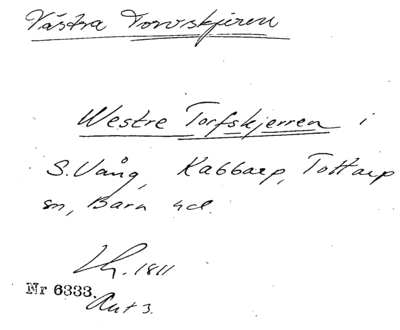 Västra Torvskjären
Westre Torfskjerren i
S. Vång, Kabbarp, Tottarp
sn, Bara hd.
Lh. 1811
Nr 6333.
Akt 3.